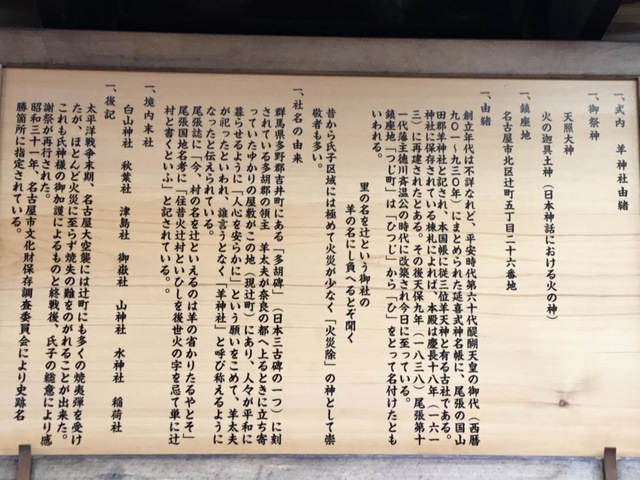 一、式内 羊神社由緒
一、御祭神
天照大神
火の迦具土神(日本神話における火の神)
一、鎮座地
名古屋市北区辻町五丁目二十六番地
一、由緒
創立年代は不詳なれど、平安時代第六十代醍醐天皇の御代(西暦
九〇一〜九三〇年)にまとめられた延喜式神名帳に、尾張の国山
田郡羊神社と記され、本国帳に従三位羊天神と有る古社である。
神社に保存されている棟札によれば、本殿は慶長十八年(一六一
三)に再建されたとある。その後天保九年(一八三八)尾張第十
一代藩主徳川斉温公の時代に改築され今日に至っている。
鎮座地「つじ町」は「ひつじ」から「ひ」をとって名付けたとも
いわれる。
里の名を辻という御社の
羊の名にし負へるとぞ聞く
昔から氏子区域には極めて火災が少なく「火災除」の神として崇
敬者も多い。
一、社名の由来
群馬県多野郡吉井町にある「多胡碑」(日本三古碑の一つ)に刻
されている多胡郡の領主 羊太夫が奈良の都へ上るときに立ち寄
っていたゆかりの屋敷がこの地(現辻町)にあり、人々が平和に
暮らせるように「人心を安らかに」という願いをこめて、羊太夫
が祀ったといわれ、誰言うとなく「羊神社」と呼び称えるように
なったと伝えられている。
尾張誌に「今、村の名を辻といえるのは羊の省かりたるやとぞ」
尾張国地名考に「往昔火辻村といひしを後世火の字を忌て単に辻
村と書くといふ」と記されている。
一、境内末社
白山神社 秋葉社 津島社 御嶽社 山神社 水神社 稲荷社
一、後記
太平洋戦争末期、名古屋大空襲には辻町にも多くの焼夷弾を受け
たが、ほとんど火災に至らず焼失の難をのがれることが出来た。
これも氏神様の御加護によるものと終戦後、氏子の総意により感
謝祭が再行された。
昭和三十一年、名古屋市文化財保存調査委員会により史跡名
勝箇所に指定されている。